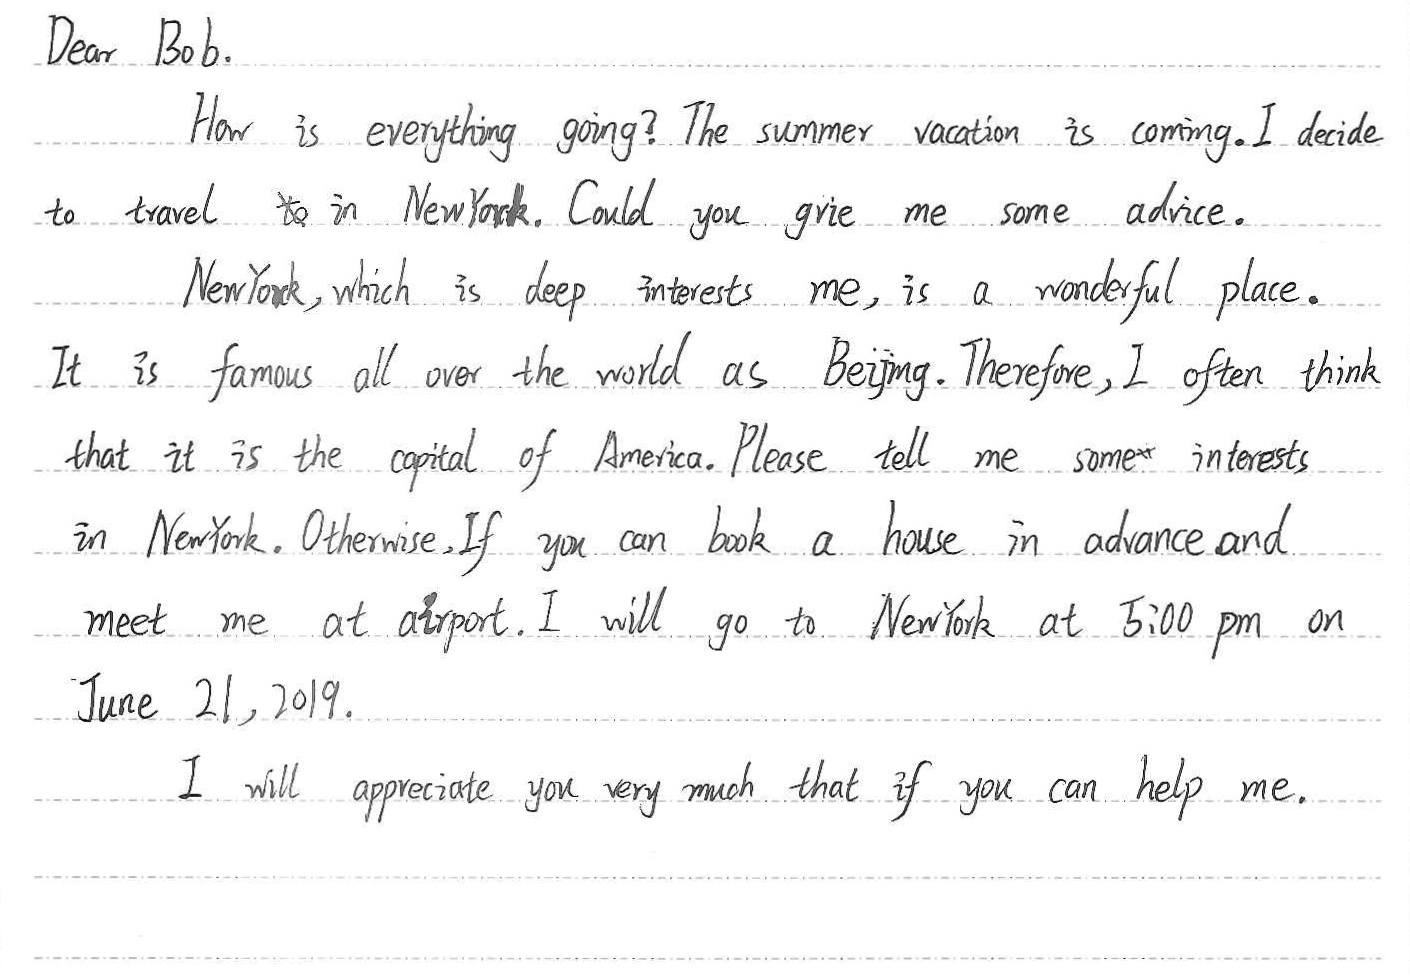 Dear Bob.
How is everything going? The summer vacation is coming. I decide
to travel in NewYork. Could you grie me some advice.
NewYork, which is deep interests me, is a wonderful place.
It is famous all over the world as Beijing. Therefore, I often think
that it is the capital of America. Please tell me some interests
in NewYork. Otherwise, If you can book a house in advance and
meet me at airport. I will go to NewYork at 5:00 pm on
June 21, 2019.
I will appreciate you very much that if you can help me.